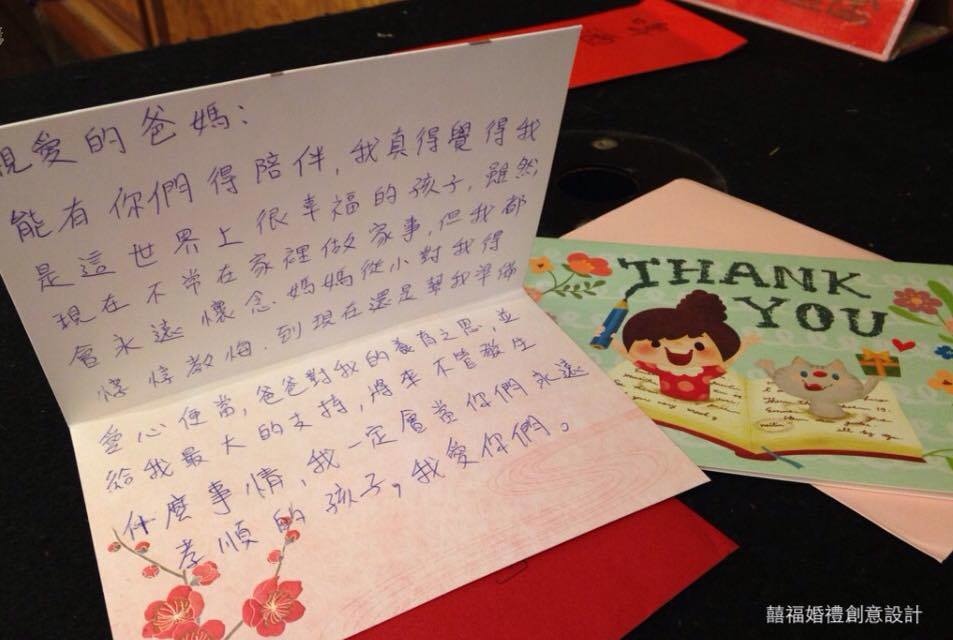 親愛的爸媽：
能有你們得陪伴，我真得覺得我
是這世界上很幸福的孩子，雖然
現在不常在家裡做家事，但我都
會永遠懷念，媽媽從小對我得
諄諄教悔，到現在還是幫我準備
愛心便當，爸爸對我的養育之恩，並
給我最大的支持，將來不管發生
什麼事情，我一定會當你們永遠
孝順的孩子。我愛你們。
THANK
YOU
囍福婚禮創意設計